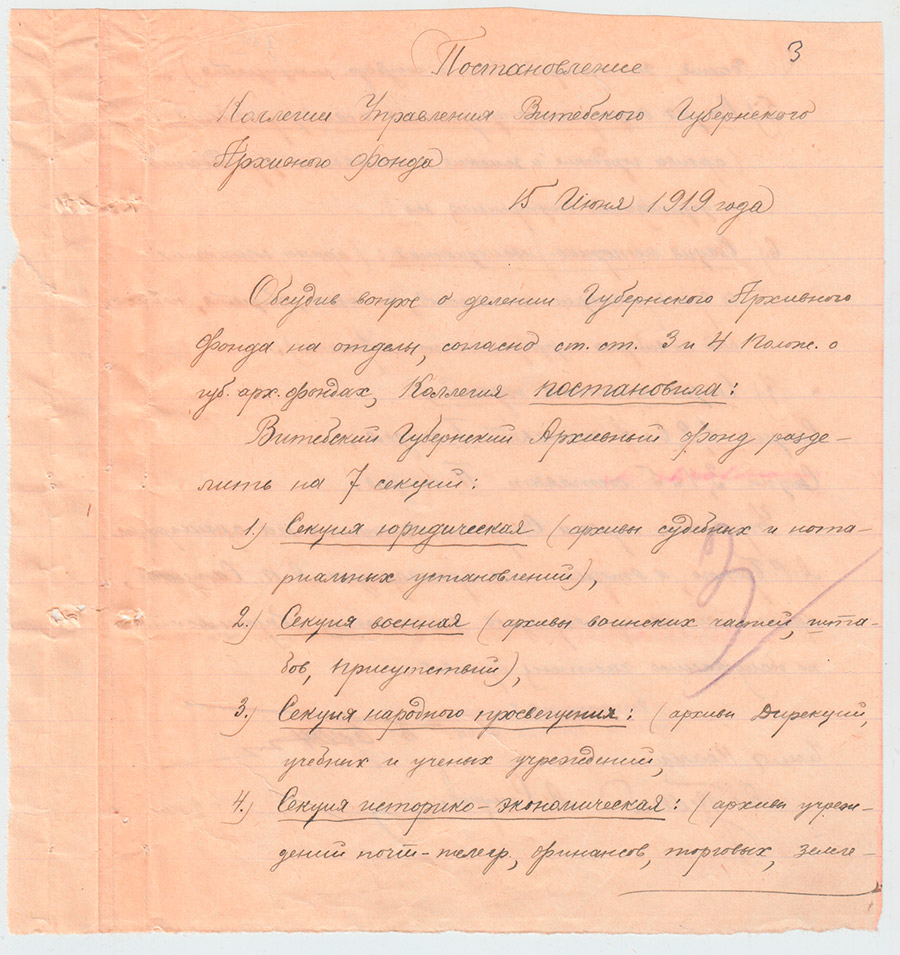 3
Постановление
Коллегии Управления Витебского Губернского
Архивного фонда
15 Июня 1919 года
Обсудив вопрос о делении Губернского Архивного
фонда на отделы, согласно ст. ст. 3 и 4 Полож. о
губ. арх. фондах, Коллегия постановила:
Витебский Губернский Архивный фонд разде-
лить на 7 секций:
1.) Секция юридическая (архивы судебных и нота-
риальных установлений),
2.) Секция военная (архивы воинских частей, шта-
бов, присутствий),
3.) Секция народного просвещения: (архивы Дирекций,
учебных и ученых учреждений,
4.) Секция историко-экономическая: (архивы учреж-
дений почт-телегр, финансов, торговых, земле-
3